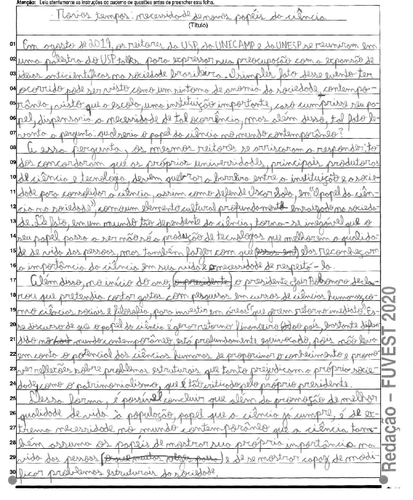 Atenção: Leia atentamente as instruções do caderno de questões antes de preencher esta folha.
Novos tempos, necessidade de novos papéis da ciência
(Título)
01 Em agosto de 2019, os reitores da USP, da UNICAMP e da UNESP se reuniram em
02 uma palestra do USP talks, para expressar sua preocupação com a expansão de
03 ideias anticientíficas na sociedade brasileira. O simples fato desse evento ter
04 ocorrido pode ser visto como um sintoma de anomia da sociedade contempo-
05 rânea, visto que a escola, uma instituição importante, caso cumprisse seu pa-
06 pel, dispensaria a necessidade de tal ocorrência, mas além disso, tal fato le-
07 vanta a pergunta: qual seria o papel da ciência no mundo contemporâneo?
08 A essa pergunta, os mesmos reitores se arriscaram a responder: to-
09 dos concordaram que as próprias universidades, principais produtoras
10 de ciência e tecnologia, devem quebrar a barreira entre a instituição e a socie-
11 dade para consolidar a ciência, assim como defende em "O papel da ciên-
12 cia na sociedade", como um elemento cultural profundamente enraizado na socieda-
13 de. De fato, em um mundo tão dependente da ciência, torna-se inegável que o
14 seu papel passa a ser não só a produção de tecnologias que melhoram a qualida-
15 de de vida das pessoas, mas também fazer com que elas reconheçam
16 a importância da ciência em sua vida e a necessidade de respeitá-la.
17 Além disso, no início do ano, o presidente Jair Bolsonaro decla-
18 rou que pretendia cortar gastos com pesquisas em cursos de ciências humanas, co-
19 mo ciências sociais e filosofia, para investir em áreas "que gerem retorno imediato". Es-
20 se discurso de que o papel da ciência é gerar retorno financeiro ao país, bastante difun-
21 dido no mundo contemporâneo, está profundamente equivocado, pois não leva
22 em conta o potencial das ciências humanas de proporcionar o conhecimento e promo-
23 ver reflexões sobre problemas estruturais que tanto prejudicam a própria socie-
24 dade, como o patrimonialismo, que é tão criticado pelo próprio presidente.
25 Dessa forma, é possível concluir que além da promoção de melhor
26 qualidade de vida à população, papel que a ciência já cumpre, é de ex-
27 trema necessidade no mundo contemporâneo que a ciência tam-
28 bém assuma os papéis de mostrar sua própria importância na
29 vida das pessoas e de se mostrar capaz de modi-
30 ficar problemas estruturais da sociedade.
Redação – FUVEST 2020